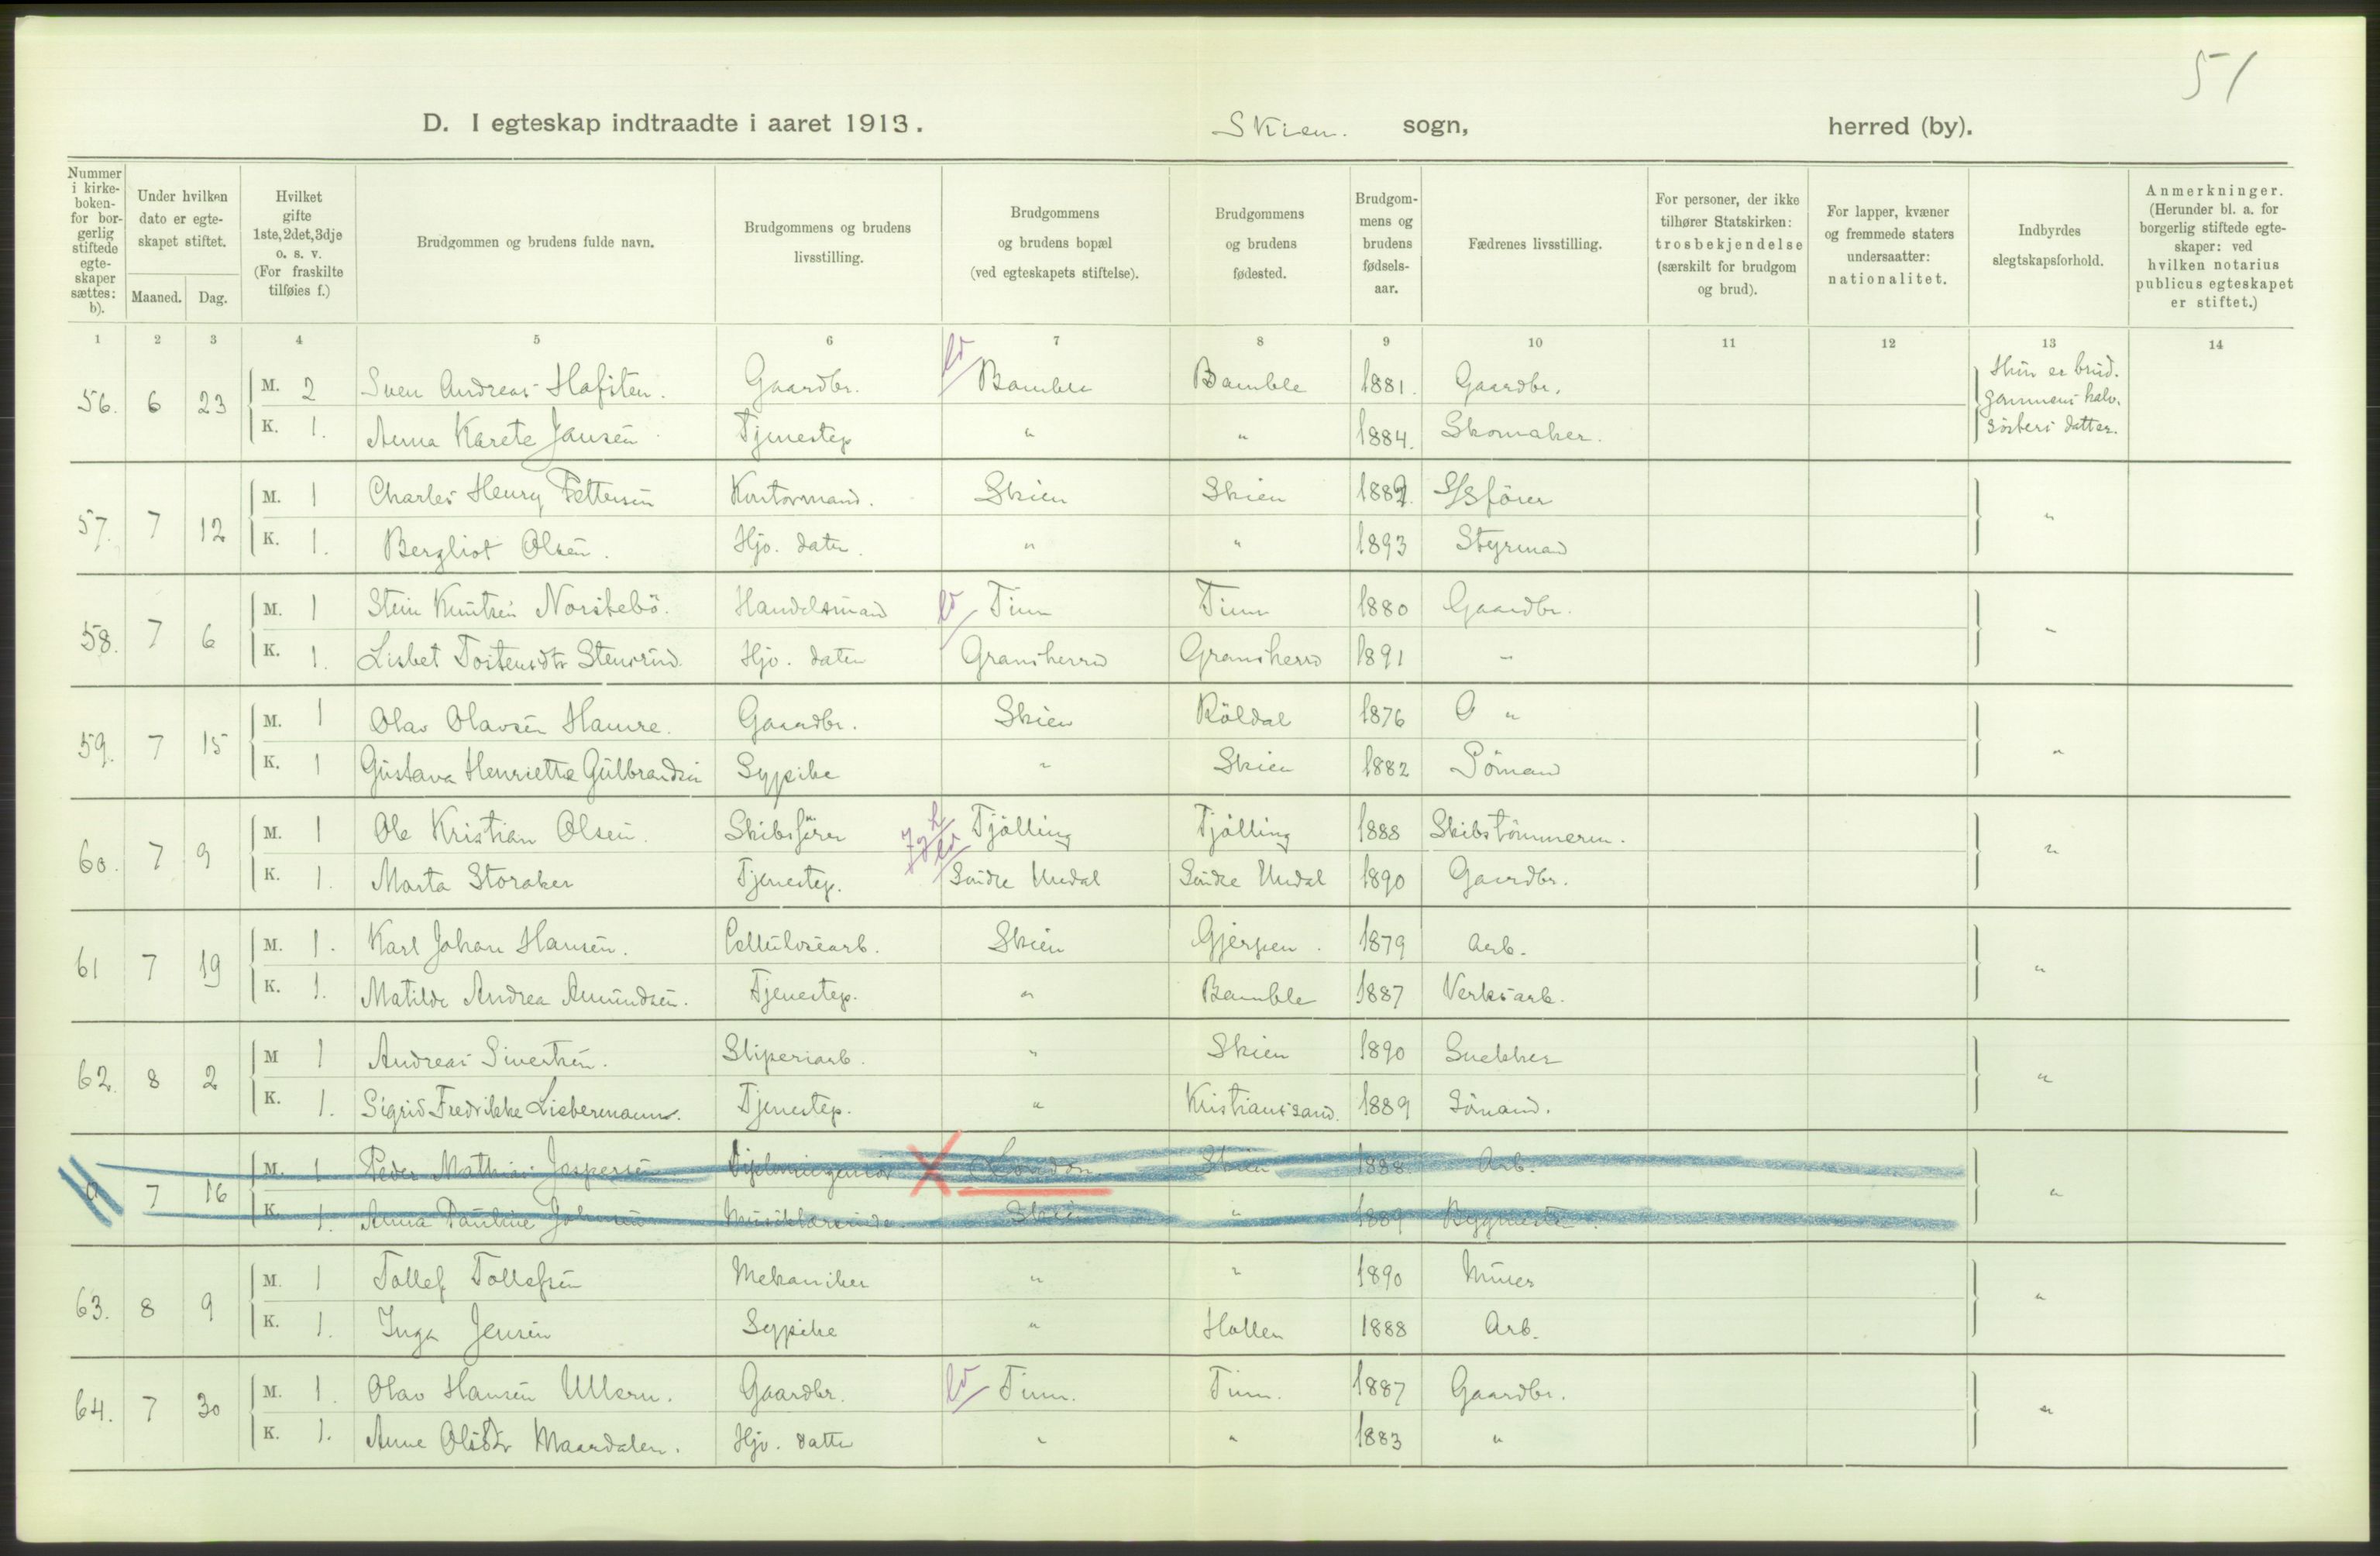 51
D. I egteskap indtraadte i aaret 1913. Skien. sogn, herred (by).
Nummer i kirkeboken- for borgerlig stiftede egteskaper sættes: b).
Under hvilken dato er egteskapet stiftet.
Maaned. Dag.
Hvilket gifte 1ste, 2det, 3dje o. s. v. (For fraskilte tilføies f.)
Brudgommen og brudens fulde navn.
Brudgommens og brudens livsstilling.
Brudgommens og brudens bopæl (ved egteskapets stiftelse).
Brudgommens og brudens fødested.
Brudgommens og brudens fødselsaar.
Fædrenes livsstilling.
For personer, der ikke tilhører Statskirken: trosbekjendelse (særskilt for brudgom og brud).
For lapper, kvæner og fremmede staters undersaatter: nationalitet.
Indbyrdes slegtskapsforhold.
Anmerkninger. (Herunder bl. a. for borgerlig stiftede egteskaper: ved hvilken notarius publicus egteskapet er stiftet.)
1 2 3 4 5 6 7 8 9 10 11 12 13 14
56. 6 23 M. 2 Sven Andreas Hafsten. Gaardbr. Bamble Bamble 1881. Gaardbr. Hun er brudgommens halvsösters datter.
K. 1. Anna Karete Jansen Tjenestep " " 1884. Skomaker.
57. 7 12 M. 1 Charles Henry Pettersen Kontormand. Skien Skien 1889. S/S förer "
K. 1. Bergliot Olsen. Hjv. datter. " " 1893 Styrmand
58. 7 6 M. 1 Stein Knutsen Norskebö. Handelsmand Tinn Tinn 1880 Gaardbr. "
K. 1. Lisbet Tostensdtr Stensrud. Hjv. datter Gransherrd Gransherrd 1891 "
59. 7 15 M. 1 Olav Olavsen Hamre. Gaardbr. Skien Röldal 1876 " "
K. 1 Gustava Henriette Gulbrandsen Sypike " Skien 1882 Sömand
60. 7 9 M. 1 Ole Kristian Olsen. Skibsförer Tjölling Tjölling 1888 Skibstömmerm. "
K. 1. Marta Storaker Tjenestep. Söndre Undal Söndre Undal 1890 Gaardbr.
61 7 19 M. 1. Karl Johan Hansen. Cellulosearb. Skien Gjerpen. 1879 Arb. "
K. 1. Matilde Andrea Amundsen. Tjenestep. " Bamble 1887 Verksarb.
62. 8 2 M 1 Andreas Sivertsen. Sliperiarb. " Skien 1890 Snekker "
K. 1. Sigrid Fredrikke Liebermann. Tjenestep. " Kristianssand. 1889 Sömand.
a 7 16 M. 1 Peder Mathias Jespersen Diplomingeniör London Skien 1888. Arb. "
K. 1. Anna Pauline Johnsen Musiklærerinde. Skien " 1889 Bygmester.
63. 8 9 M. 1 Tollef Tollefsen Mekaniker " " 1890 Murer "
K. 1. Inga Jensen Sypike " Hollen 1888 Arb.
64. 7 30 M. 1. Olav Hansen Ullern. Gaardbr. Tinn. Tinn. 1887 Gaardbr. "
K. 1. Anne Olsdtr Maardalen. Hjv. datter " " 1883 "